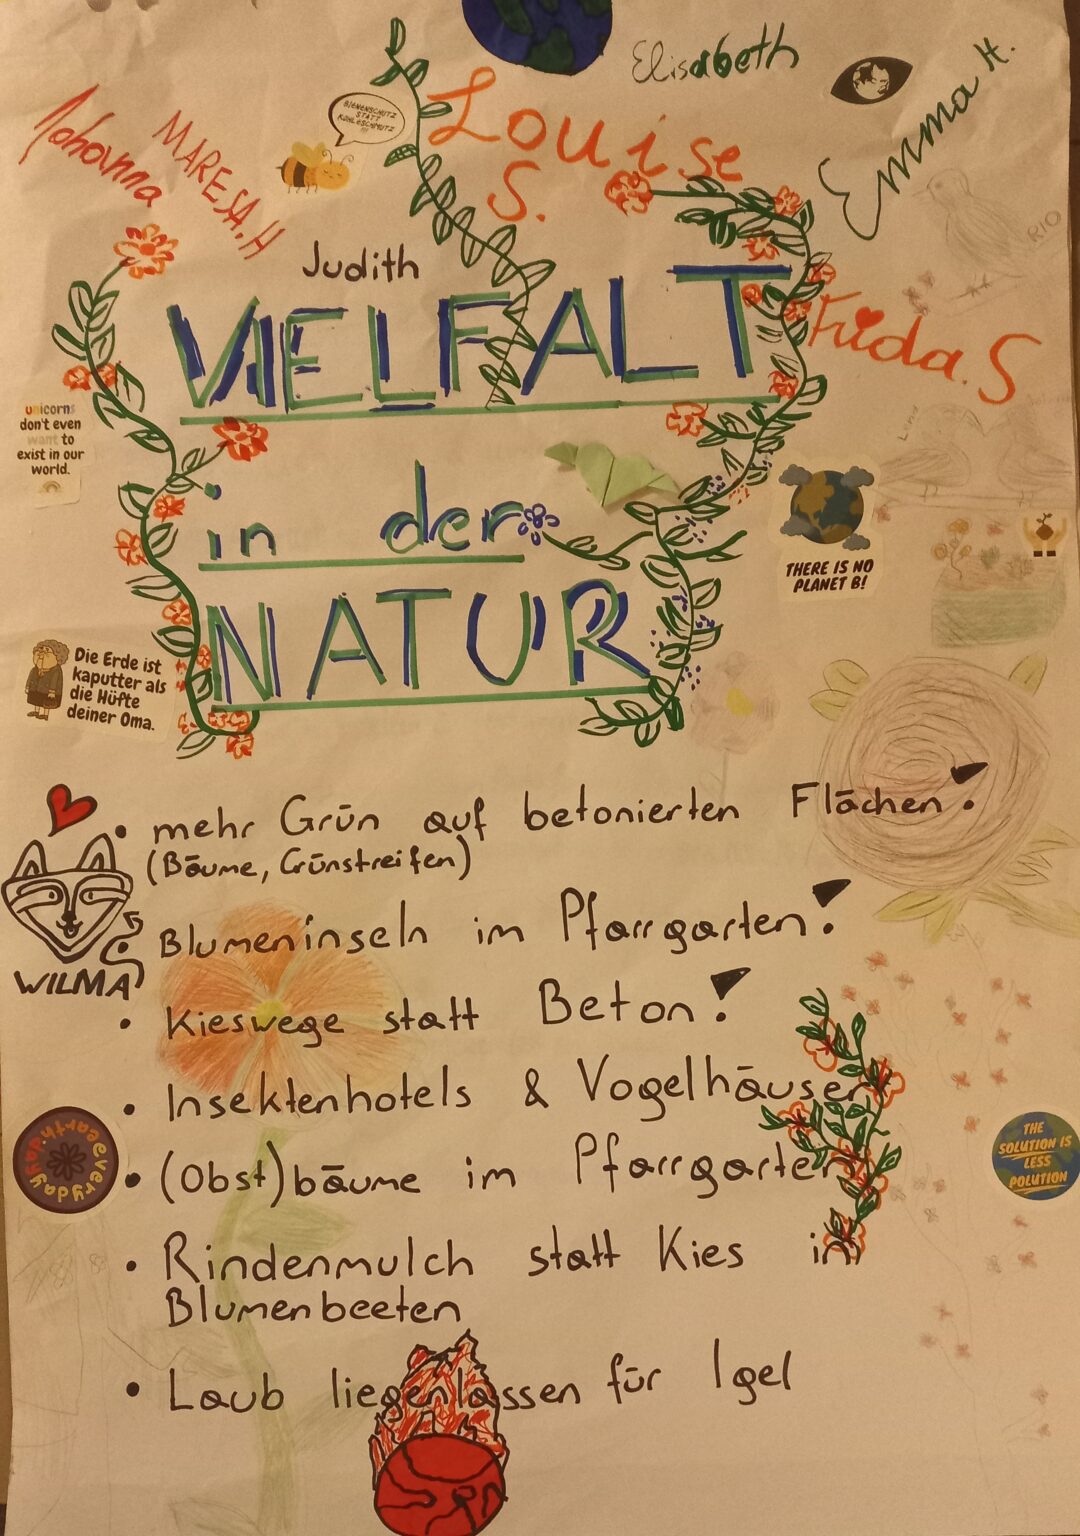 Elisabeth
Louise
S.
Emma H.
Johanna
MARESA.H
BIENENSCHUTZ
STATT
KOHLESCHMUTZ
!!!
RIO
Judith
VIELFALT
Frida.S
unicorns
don't even
want to
exist in our
world.
in der
THERE IS NO
PLANET B!
NATUR
Die Erde ist
kaputter als
die Hüfte
deiner Oma.
• mehr Grün auf betonierten Flächen!
(Bäume, Grünstreifen)
• Blumeninseln im Pfarrgarten!
WILMA
• Kieswege statt Beton!
• Insektenhotels & Vogelhäuser
everyday
earth day
THE
SOLUTION IS
LESS
POLUTION
• (Obst)bäume im Pfarrgarten
• Rindenmulch statt Kies in
Blumenbeeten
• Laub liegenlassen für Igel